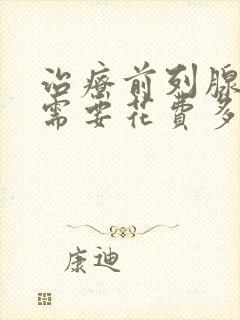 治療前列腺
需要花費多
康迪